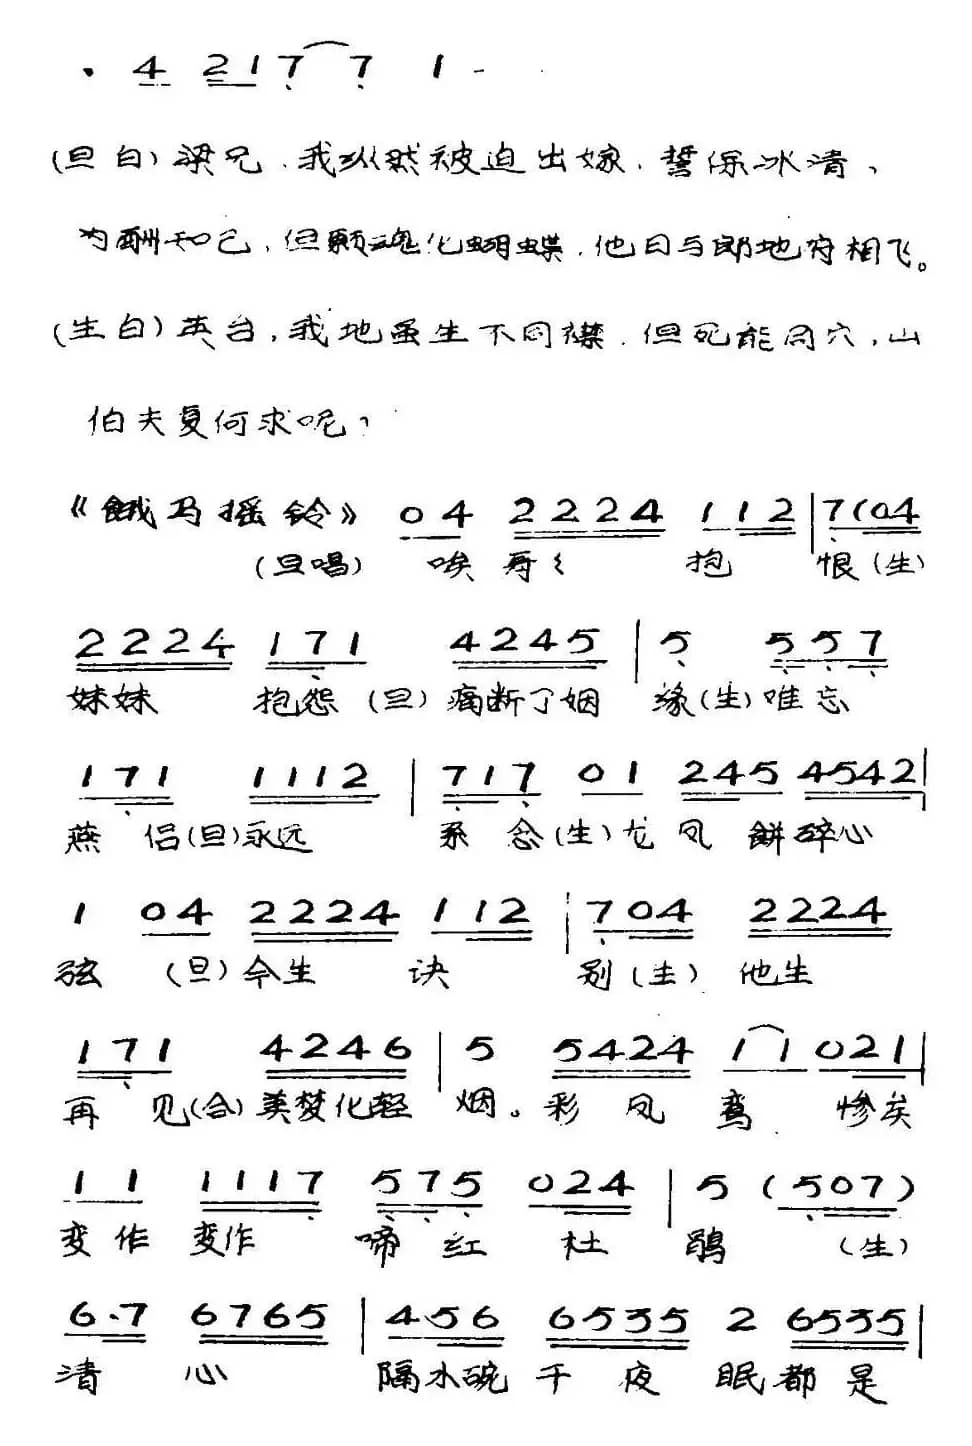 · 4 2 1 7 7 1 -
(旦白) 梁兄、我纵然被迫出嫁、誓保冰清、
为酬知己、但愿魂化蝴蝶、他日与郎地府相飞。
(生白) 英台、我地虽生不同襟、但死能同穴、山
伯夫复何求呢?
《饿马摇铃》 0 4 2 2 2 4 1 1 2 | 7 (0 4
(旦唱) 唉哥〻 抱 恨 (生)
2 2 2 4 1 7 1 4 2 4 5 | 5 5 5 7
妹妹 抱怨 (旦) 痛断了姻 缘 (生) 难忘
1 7 1 1 1 1 2 | 7 1 7 0 1 2 4 5 4 5 4 2 |
燕 侣 (旦) 永远 系 念 (生) 龙凤 餅碎心
1 0 4 2 2 2 4 1 1 2 | 7 0 4 2 2 2 4
弦 (旦) 今生 诀 别 (生) 他生
1 7 1 4 2 4 6 | 5 5 4 2 4 1 1 0 2 1 |
再 见 (合) 美梦化轻 烟。彩 凤 鸾 惨矣
1 1 1 1 1 7 5 7 5 0 2 4 | 5 (5 0 7)
变作 变作 啼 红 杜 鹃 (生)
6· 7 6 7 6 5 | 4· 5 6 6 5 3 5 2 6 5 3 5 |
清 心 隔水碗 千 夜 眠都是